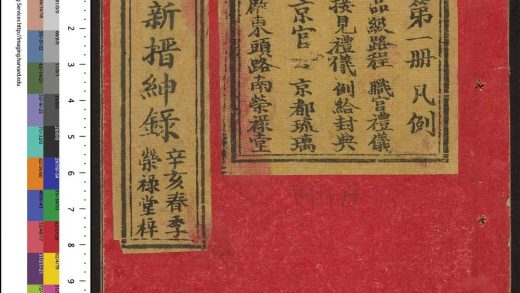 第一冊 凡例
品級路程 職官禮儀
接見禮儀 例給封典
京官 京都琉璃
廠東頭路南榮祿堂
新搢紳錄
辛亥春季
榮祿堂梓
Services http://imaging.harvard.edu
2
3
4
5
6
7
8
9